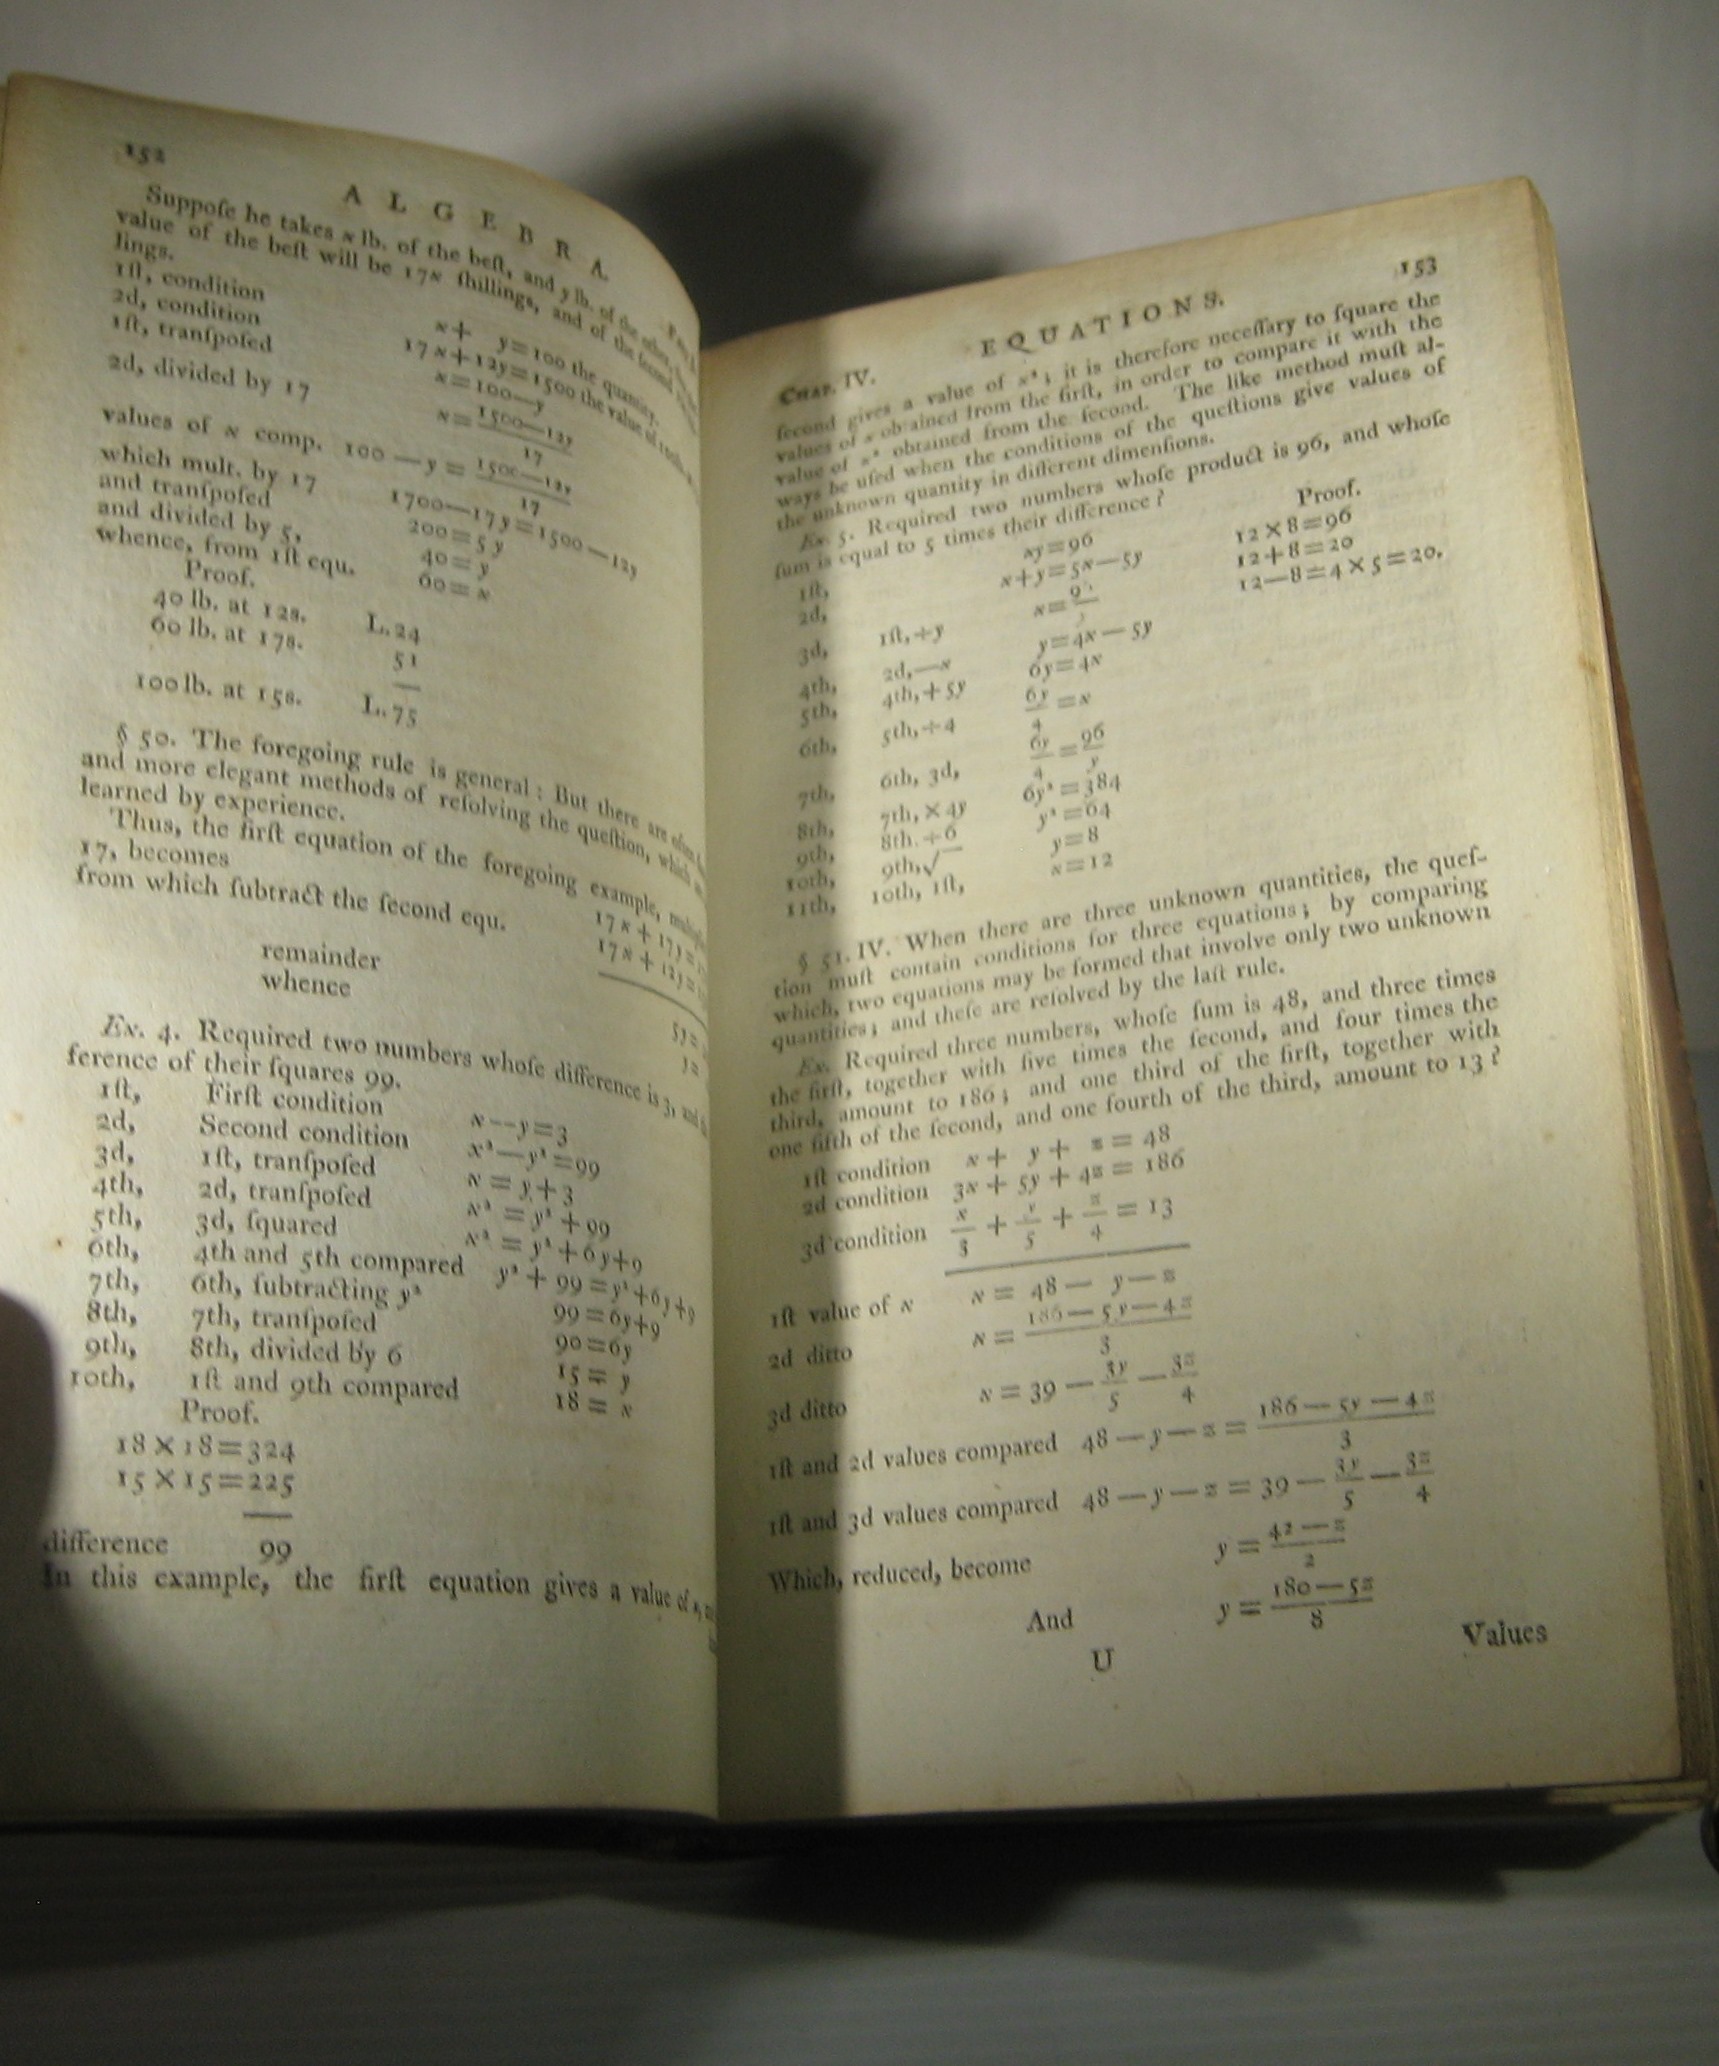 152
ALGEBRA.
Suppoſe he takes x lb. of the beſt, and y lb. of the other, the
value of the beſt will be 17x ſhillings, and of the ſecond
lings.
1ſt, condition x + y = 100 the quantity.
2d, condition 17x + 12y = 1500 the value of
1ſt, tranſpoſed x = 100 — y
2d, divided by 17 x = 1500—12y / 17
values of x comp. 100 — y = 1500—12y / 17
which mult. by 17 1700—17y = 1500—12y
and tranſpoſed 200 = 5y
and divided by 5, 40 = y
whence, from 1ſt equ. 60 = x
Proof.
40 lb. at 12s. L. 24
60 lb. at 17s. 51
100 lb. at 15s. L. 75
§ 50. The foregoing rule is general: But there are often
and more elegant methods of reſolving the queſtion, which
learned by experience.
Thus, the firſt equation of the foregoing example,
17, becomes 17x + 17y =
from which ſubtract the ſecond equ. 17x + 12y =
remainder 5y =
whence y =
Ex. 4. Required two numbers whoſe difference is 3, and
ference of their ſquares 99.
1ſt, Firſt condition x — y = 3
2d, Second condition x² — y² = 99
3d, 1ſt, tranſpoſed x = y + 3
4th, 2d, tranſpoſed x² = y² + 99
5th, 3d, ſquared x² = y² + 6y + 9
6th, 4th and 5th compared y² + 99 = y² + 6y + 9
7th, 6th, ſubtracting y² 99 = 6y + 9
8th, 7th, tranſpoſed 90 = 6y
9th, 8th, divided by 6 15 = y
10th, 1ſt and 9th compared 18 = x
Proof.
18 × 18 = 324
15 × 15 = 225
difference 99
In this example, the firſt equation gives a value of x,
153
CHAP. IV. EQUATIONS.
ſecond gives a value of x²; it is therefore neceſſary to ſquare the
values of x obtained from the firſt, in order to compare it with the
value of x² obtained from the ſecond. The like method muſt al-
ways be uſed when the conditions of the queſtions give values of
the unknown quantity in different dimenſions.
Ex. 5. Required two numbers whoſe product is 96, and whoſe
ſum is equal to 5 times their difference?
Proof.
1ſt, xy = 96 12 × 8 = 96
2d, x + y = 5x — 5y 12 + 8 = 20
3d, 1ſt, ÷ y x = 96 / y 12 — 8 = 4 × 5 = 20.
4th, 2d, — x y = 4x — 5y
5th, 4th, + 5y 6y = 4x
6th, 5th, ÷ 4 6y / 4 = x
7th, 6th, 3d, 6y / 4 = 96 / y
8th, 7th, × 4y 6y² = 384
9th, 8th. ÷ 6 y² = 64
10th, 9th, √ y = 8
11th, 10th, 1ſt, x = 12
§ 51. IV. When there are three unknown quantities, the queſ-
tion muſt contain conditions for three equations; by comparing
which, two equations may be formed that involve only two unknown
quantities; and theſe are reſolved by the laſt rule.
Ex. Required three numbers, whoſe ſum is 48, and three times
the firſt, together with five times the ſecond, and four times the
third, amount to 186; and one third of the firſt, together with
one fifth of the ſecond, and one fourth of the third, amount to 13?
1ſt condition x + y + z = 48
2d condition 3x + 5y + 4z = 186
3d condition x / 3 + y / 5 + z / 4 = 13
1ſt value of x x = 48 — y — z
2d ditto x = 186 — 5y — 4z / 3
3d ditto x = 39 — 3y / 5 — 3z / 4
1ſt and 2d values compared 48 — y — z = 186 — 5y — 4z / 3
1ſt and 3d values compared 48 — y — z = 39 — 3y / 5 — 3z / 4
Which, reduced, become y = 42 — z / 2
And y = 180 — 5z / 8
U Values